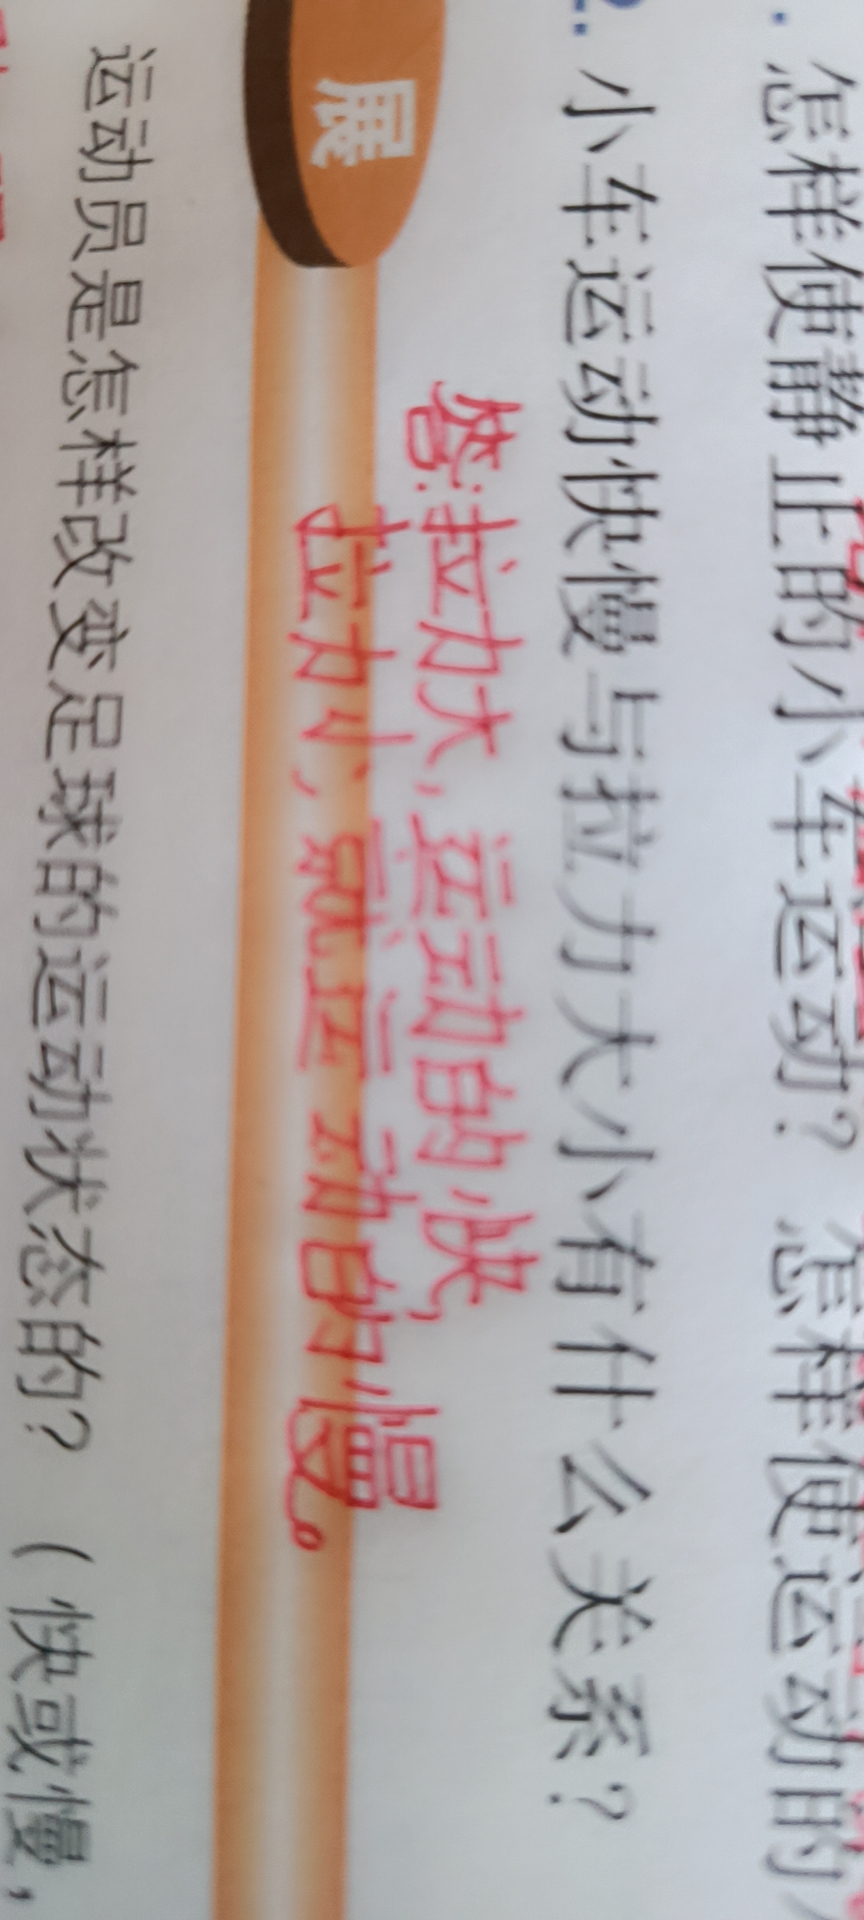 怎样使静止的小车运动？怎样使运动的
2. 小车运动快慢与拉力大小有什么关系？
答:拉力大,运动的快,
拉力小、就运动的慢。
展
运动员是怎样改变足球的运动状态的？（快或慢，